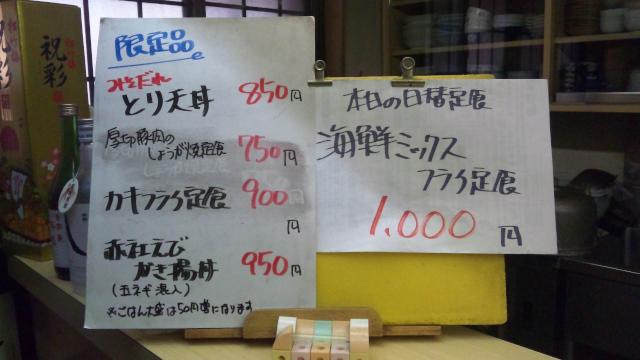 限定品
みそだれ
とり天丼 850円
厚切豚肉の
しょうが焼定食 750円
カキフライ定食 900円
円
赤社えび
かき揚丼 950円
(玉ネギ混入)
※ごはん大盛は50円増になります
本日の日替定食
海鮮ミックス
フライ定食
1,000円
祝彩